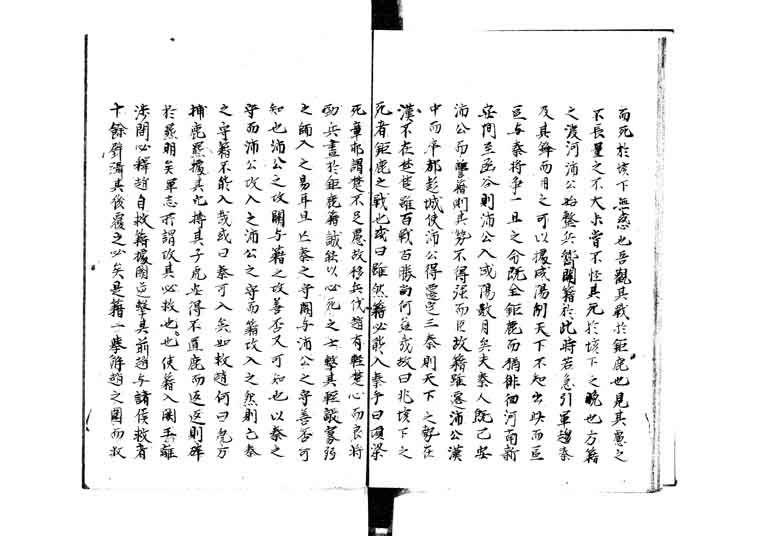 而死於垓下無惑也吾觀其戰於鉅鹿也見其慮之
不長量之不大未嘗不怪其死於垓下之晚也方籍
之渡河沛公始整兵嚮關籍於此時若急引軍趨秦
及其鋒而用之可以據咸陽制天下不知出此而區
區与秦将爭一旦之命既全鉅鹿而猶徘徊河南新
安間至函谷則沛公入咸陽數月矣夫秦人既已安
沛公而讐籍則其勢不得强而臣故籍雖遷沛公漢
中而卒都彭城使沛公得還定三秦則天下之勢在
漢不在楚楚雖百戰百勝尚何益哉故曰兆垓下之
死者鉅鹿之戰也或曰雖然籍必能入秦乎曰項梁
死章邯謂楚不足慮故移兵伐趙有輕楚心而良将
勁兵盡於鉅鹿籍誠能以必死之士擊其輕敵寡弱
之師入之易耳且亡秦之守關与沛公之守善否可
知也沛公之攻關与籍之攻善否又可知也以秦之
守而沛公攻入之沛公之守而籍攻入之然則亡秦
之守籍不能入哉或曰秦可入矣如救趙何曰虎方
捕鹿羆據其穴搏其子虎安得不置鹿而返返則碎
於羆明矣軍志所謂攻其必救也使籍入關王離
涉間必釋趙自救籍據關逆擊其前趙与諸侯救者
十餘壁躡其後覆之必矣是籍一擧解趙之圍而收